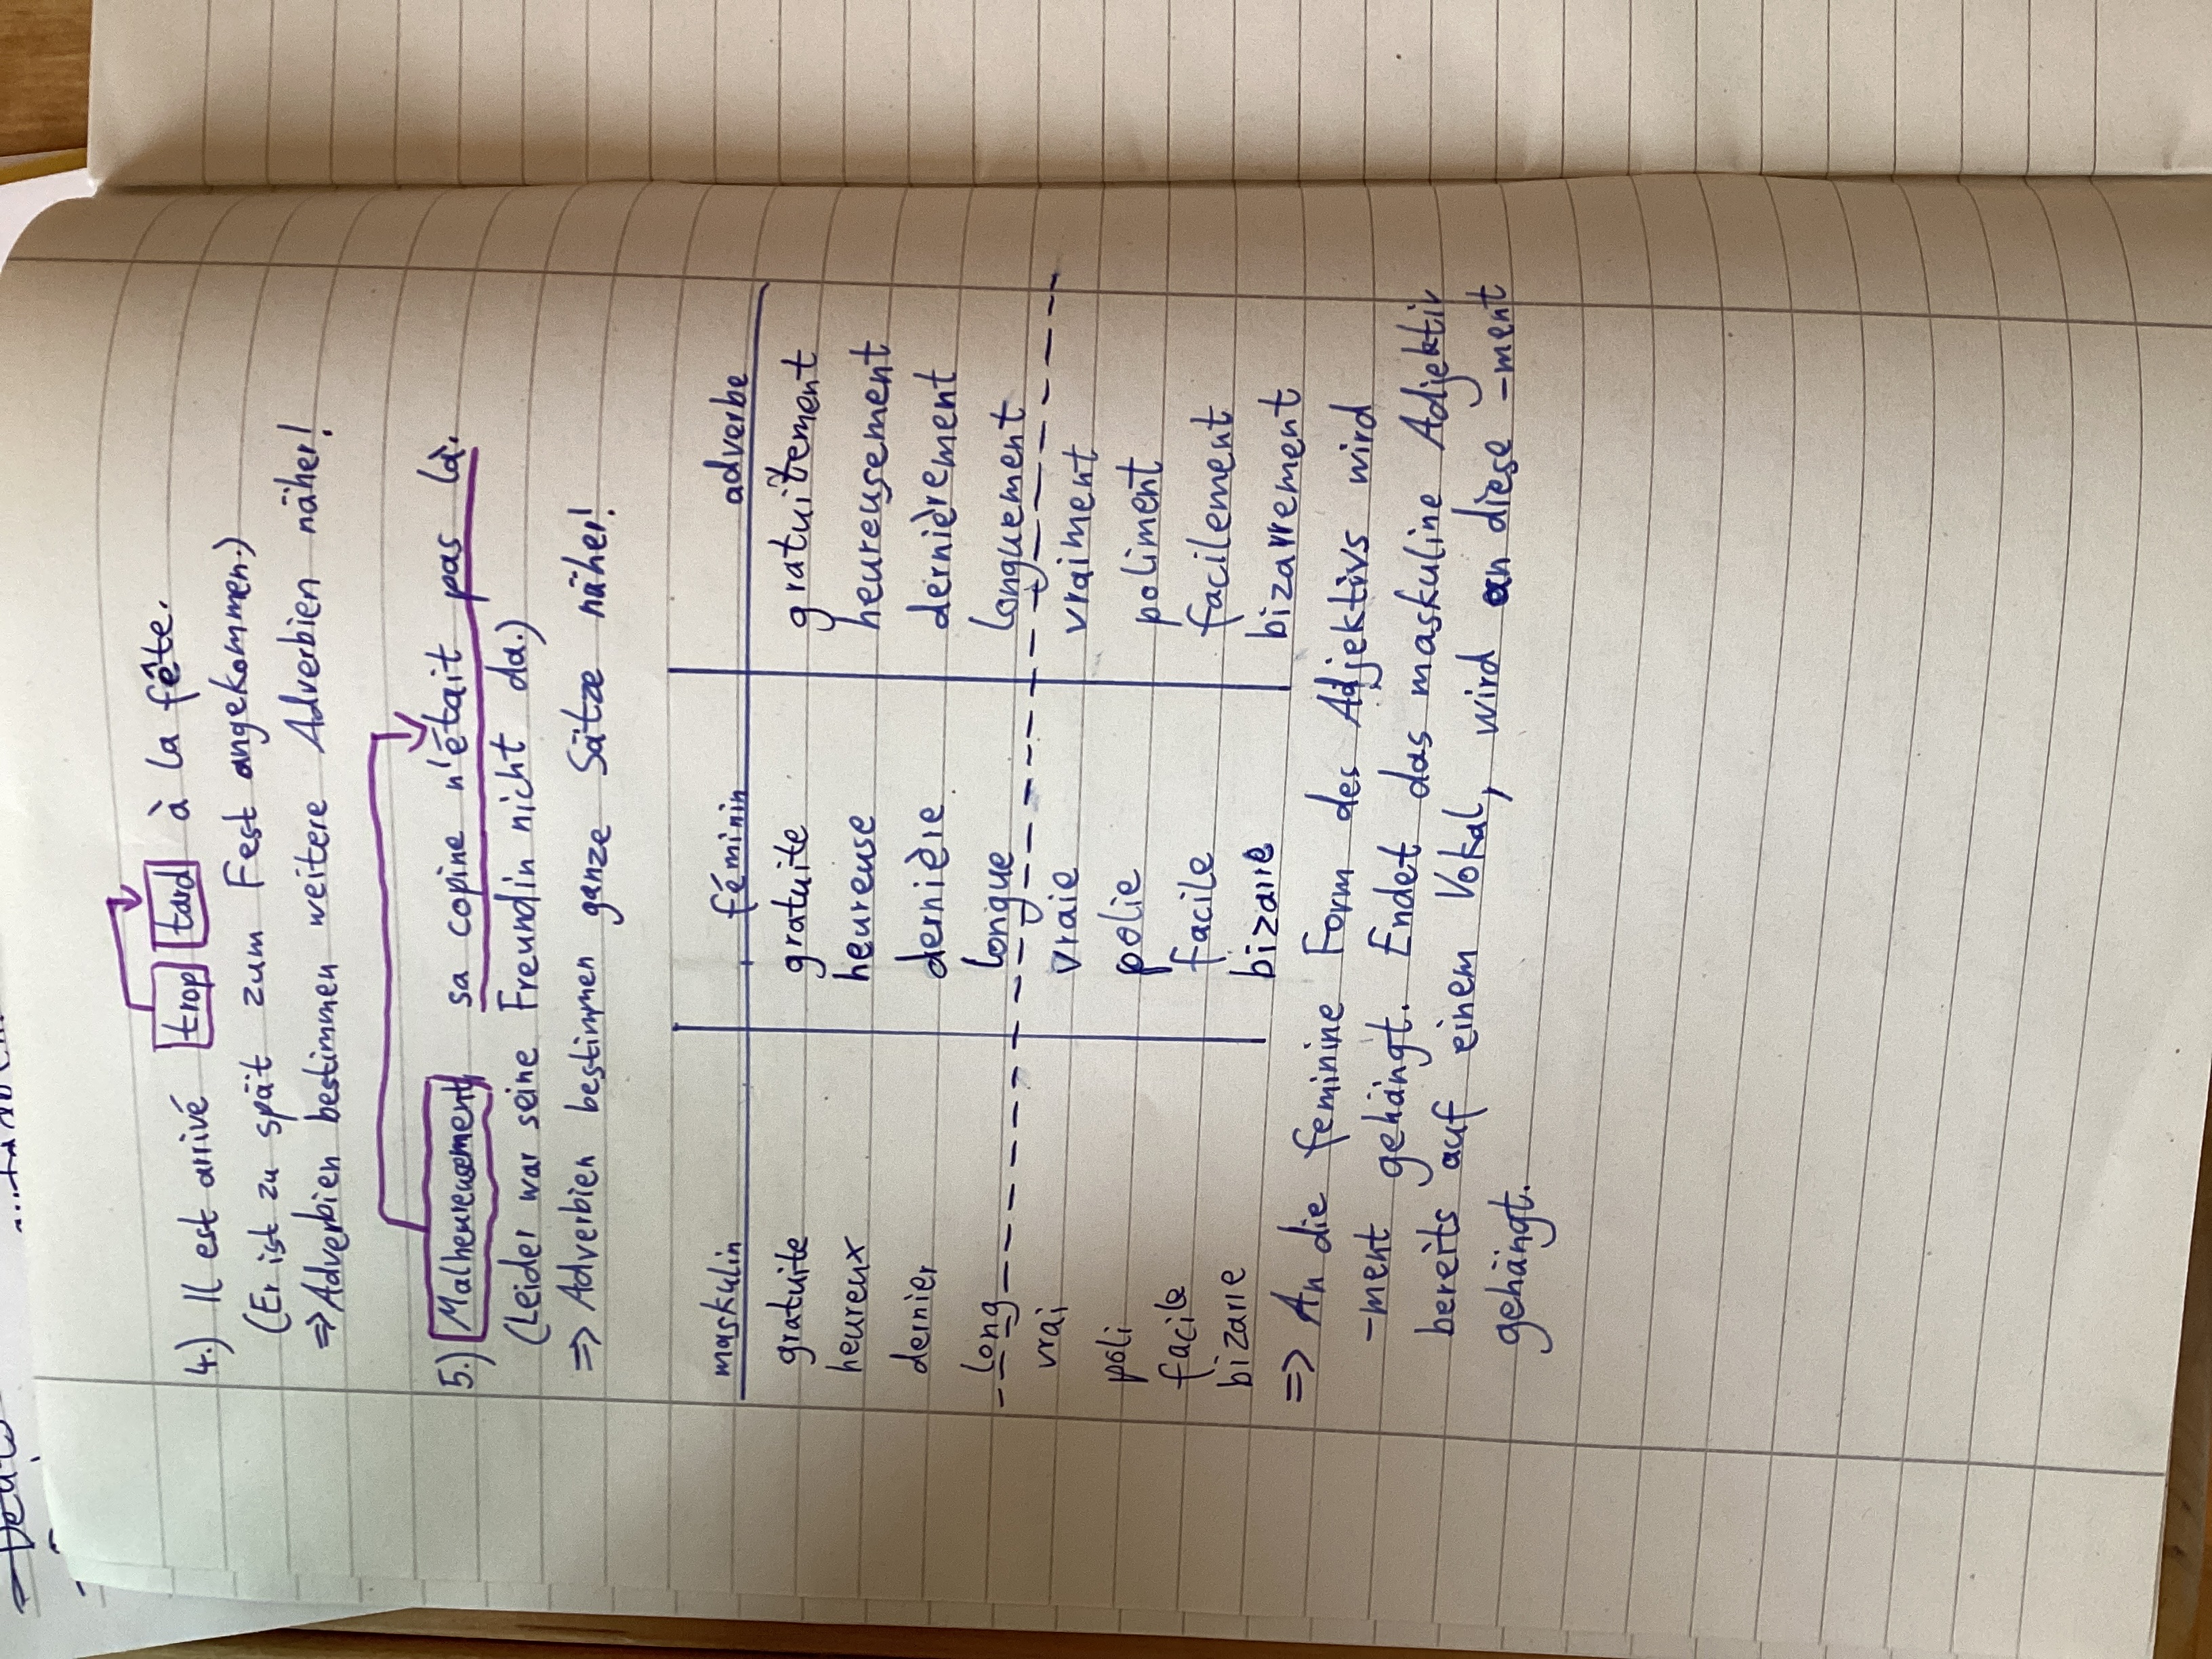 4.) Il est arrivé trop tard à la fête.
(Er ist zu spät zum Fest angekommen.)
=> Adverbien bestimmen weitere Adverbien näher!
5.) Malheureusement sa copine n'était pas là.
(Leider war seine Freundin nicht da.)
=> Adverbien bestimmen ganze Sätze näher!
maskulin féminin adverbe
gratuite gratuite gratuitement
heureux heureuse heureusement
dernier dernière dernièrement
long longue longuement
vrai vraie vraiment
poli polie poliment
facile facile facilement
bizarre bizarre bizarrement
=> An die feminine Form des Adjektivs wird
-ment gehängt. Endet das maskuline Adjektiv
bereits auf einem Vokal, wird an diese -ment
gehängt.